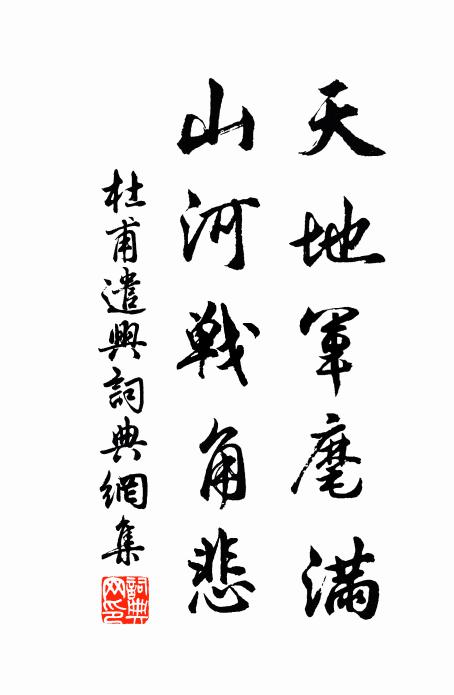 天地軍麾滿
山河戰角悲
杜甫遣興詞典網集
詞典網印